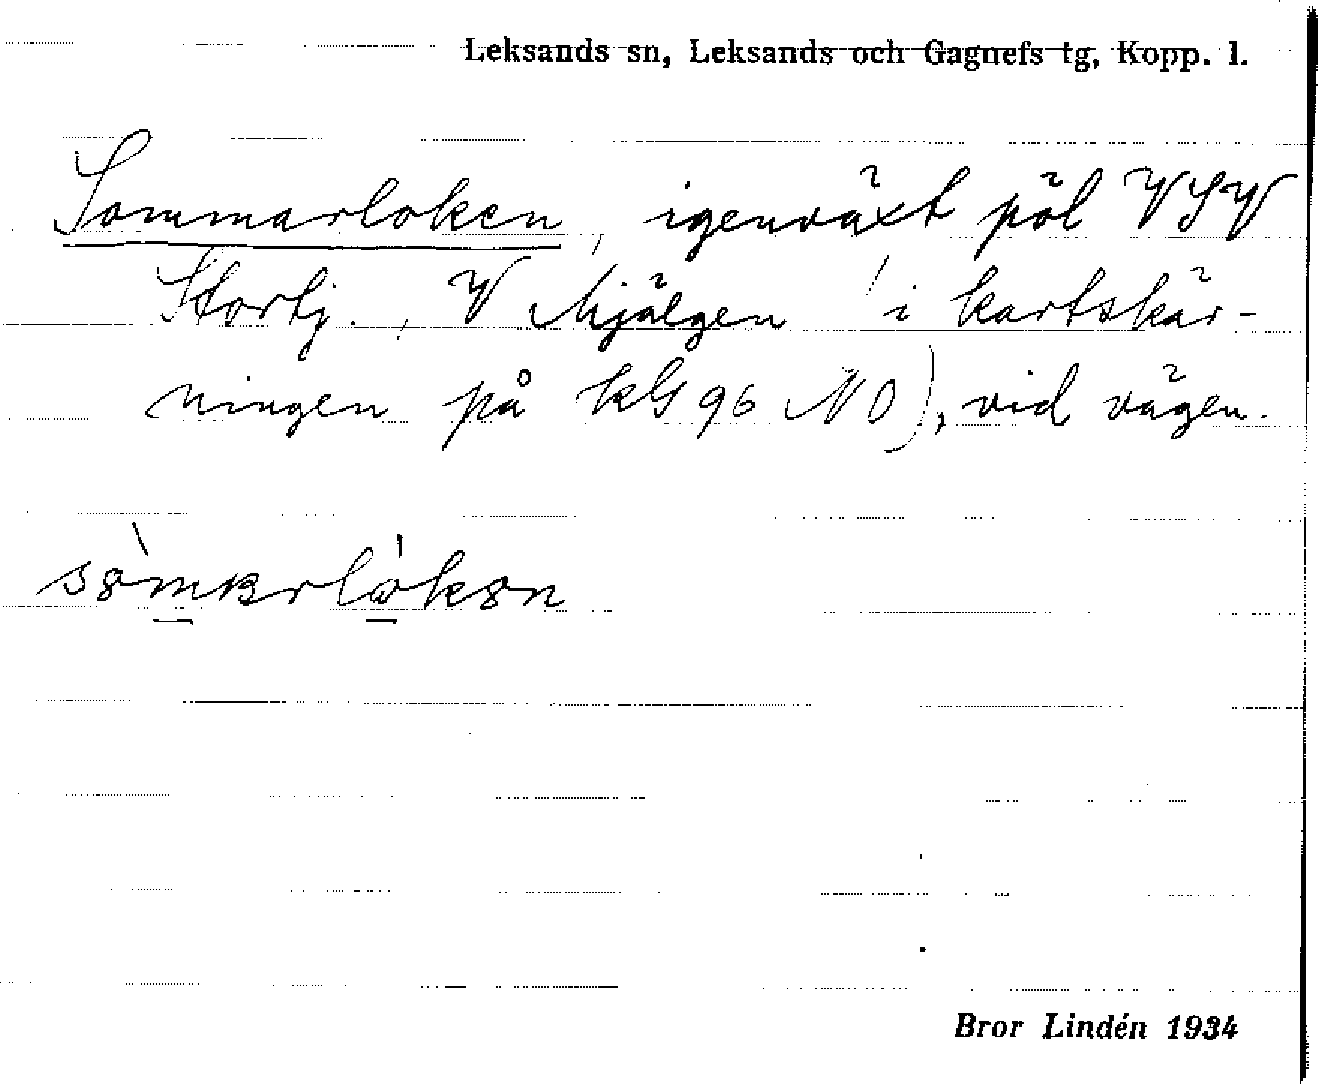 Leksands sn, Leksands och Gagnefs tg, Kopp. l.
Sommarloken, igenväxt pöl VSV
Stortj., V Mjälgen (i kartskär-
ningen på kbl 96 NO), vid vägen.
Bror Lindén 1934